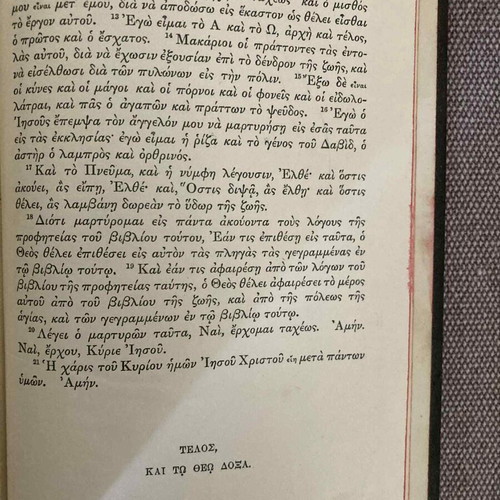 μου εἶναι μετ' ἐμοῦ, διὰ νὰ ἀποδώσω εἰς ἕκαστον ὡς θέλει εἶσθαι
τὸ ἔργον αὐτοῦ. 13 Ἐγὼ εἶμαι τὸ Α καὶ τὸ Ω, ἀρχὴ καὶ τέλος,
ὁ πρῶτος καὶ ὁ ἔσχατος. 14 Μακάριοι οἱ πράττοντες τὰς ἐντο-
λὰς αὐτοῦ, διὰ νὰ ἔχωσιν ἐξουσίαν ἐπὶ τὸ δένδρον τῆς ζωῆς, καὶ
νὰ εἰσέλθωσι διὰ τῶν πυλώνων εἰς τὴν πόλιν. 15 Ἔξω δὲ εἶναι
οἱ κύνες καὶ οἱ μάγοι καὶ οἱ πόρνοι καὶ οἱ φονεῖς καὶ οἱ εἰδωλο-
λάτραι, καὶ πᾶς ὁ ἀγαπῶν καὶ πράττων τὸ ψεῦδος. 16 Ἐγὼ ὁ
Ἰησοῦς ἔπεμψα τὸν ἄγγελόν μου νὰ μαρτυρήσῃ εἰς ἐσᾶς ταῦτα
εἰς τὰς ἐκκλησίας· ἐγὼ εἶμαι ἡ ῥίζα καὶ τὸ γένος τοῦ Δαβίδ, ὁ
ἀστὴρ ὁ λαμπρὸς καὶ ὀρθρινός.
17 Καὶ τὸ Πνεῦμα, καὶ ἡ νύμφη λέγουσιν, Ἐλθέ· καὶ ὅστις
ἀκούει, ἂς εἴπῃ, Ἐλθέ· καὶ, Ὅστις διψᾷ, ἂς ἔλθῃ· καὶ ὅστις
θέλει, ἂς λαμβάνῃ δωρεὰν τὸ ὕδωρ τῆς ζωῆς.
18 Διότι μαρτύρομαι εἰς πάντα ἀκούοντα τοὺς λόγους τῆς
προφητείας τοῦ βιβλίου τούτου, Ἐάν τις ἐπιθέσῃ εἰς ταῦτα, ὁ
Θεὸς θέλει ἐπιθέσει εἰς αὐτὸν τὰς πληγὰς τὰς γεγραμμένας ἐν
τῷ βιβλίῳ τούτῳ. 19 Καὶ ἐάν τις ἀφαιρέσῃ ἀπὸ τῶν λόγων τοῦ
βιβλίου τῆς προφητείας ταύτης, ὁ Θεὸς θέλει ἀφαιρέσει τὸ μέρος
αὐτοῦ ἀπὸ τοῦ βιβλίου τῆς ζωῆς, καὶ ἀπὸ τῆς πόλεως τῆς
ἁγίας, καὶ τῶν γεγραμμένων ἐν τῷ βιβλίῳ τούτῳ.
20 Λέγει ὁ μαρτυρῶν ταῦτα, Ναὶ, ἔρχομαι ταχέως. Ἀμήν.
Ναὶ, ἔρχου, Κύριε Ἰησοῦ.
21 Ἡ χάρις τοῦ Κυρίου ἡμῶν Ἰησοῦ Χριστοῦ εἴη μετὰ πάντων
ὑμῶν. Ἀμήν.
ΤΕΛΟΣ,
ΚΑΙ ΤΩ ΘΕΩ ΔΟΞΑ.